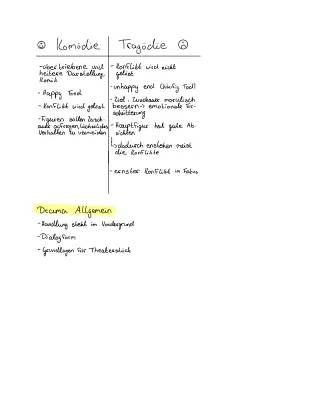 Komödie
- übertriebene und
heitere Darstellung,
Komik
- Happy End
- Konflikt wird gelöst
- Figuren sollen
Verhalten zu vermeiden
Tragödie
- Konflikt wird nicht
gelöst
- unhappy end (häufig Tod)
- Ziel: Zuschauer moralisch
bessern → emotionale Er-
schütterung
- Hauptfigur hat gute Ab
sichten
↳ dadurch entstehen meist
die Konflikte
- ernster Konflikt im Fokus
Drama Allgemein
- Handlung steht im Vordergrund
- Dialogform
- Grundlagen für Theaterstück